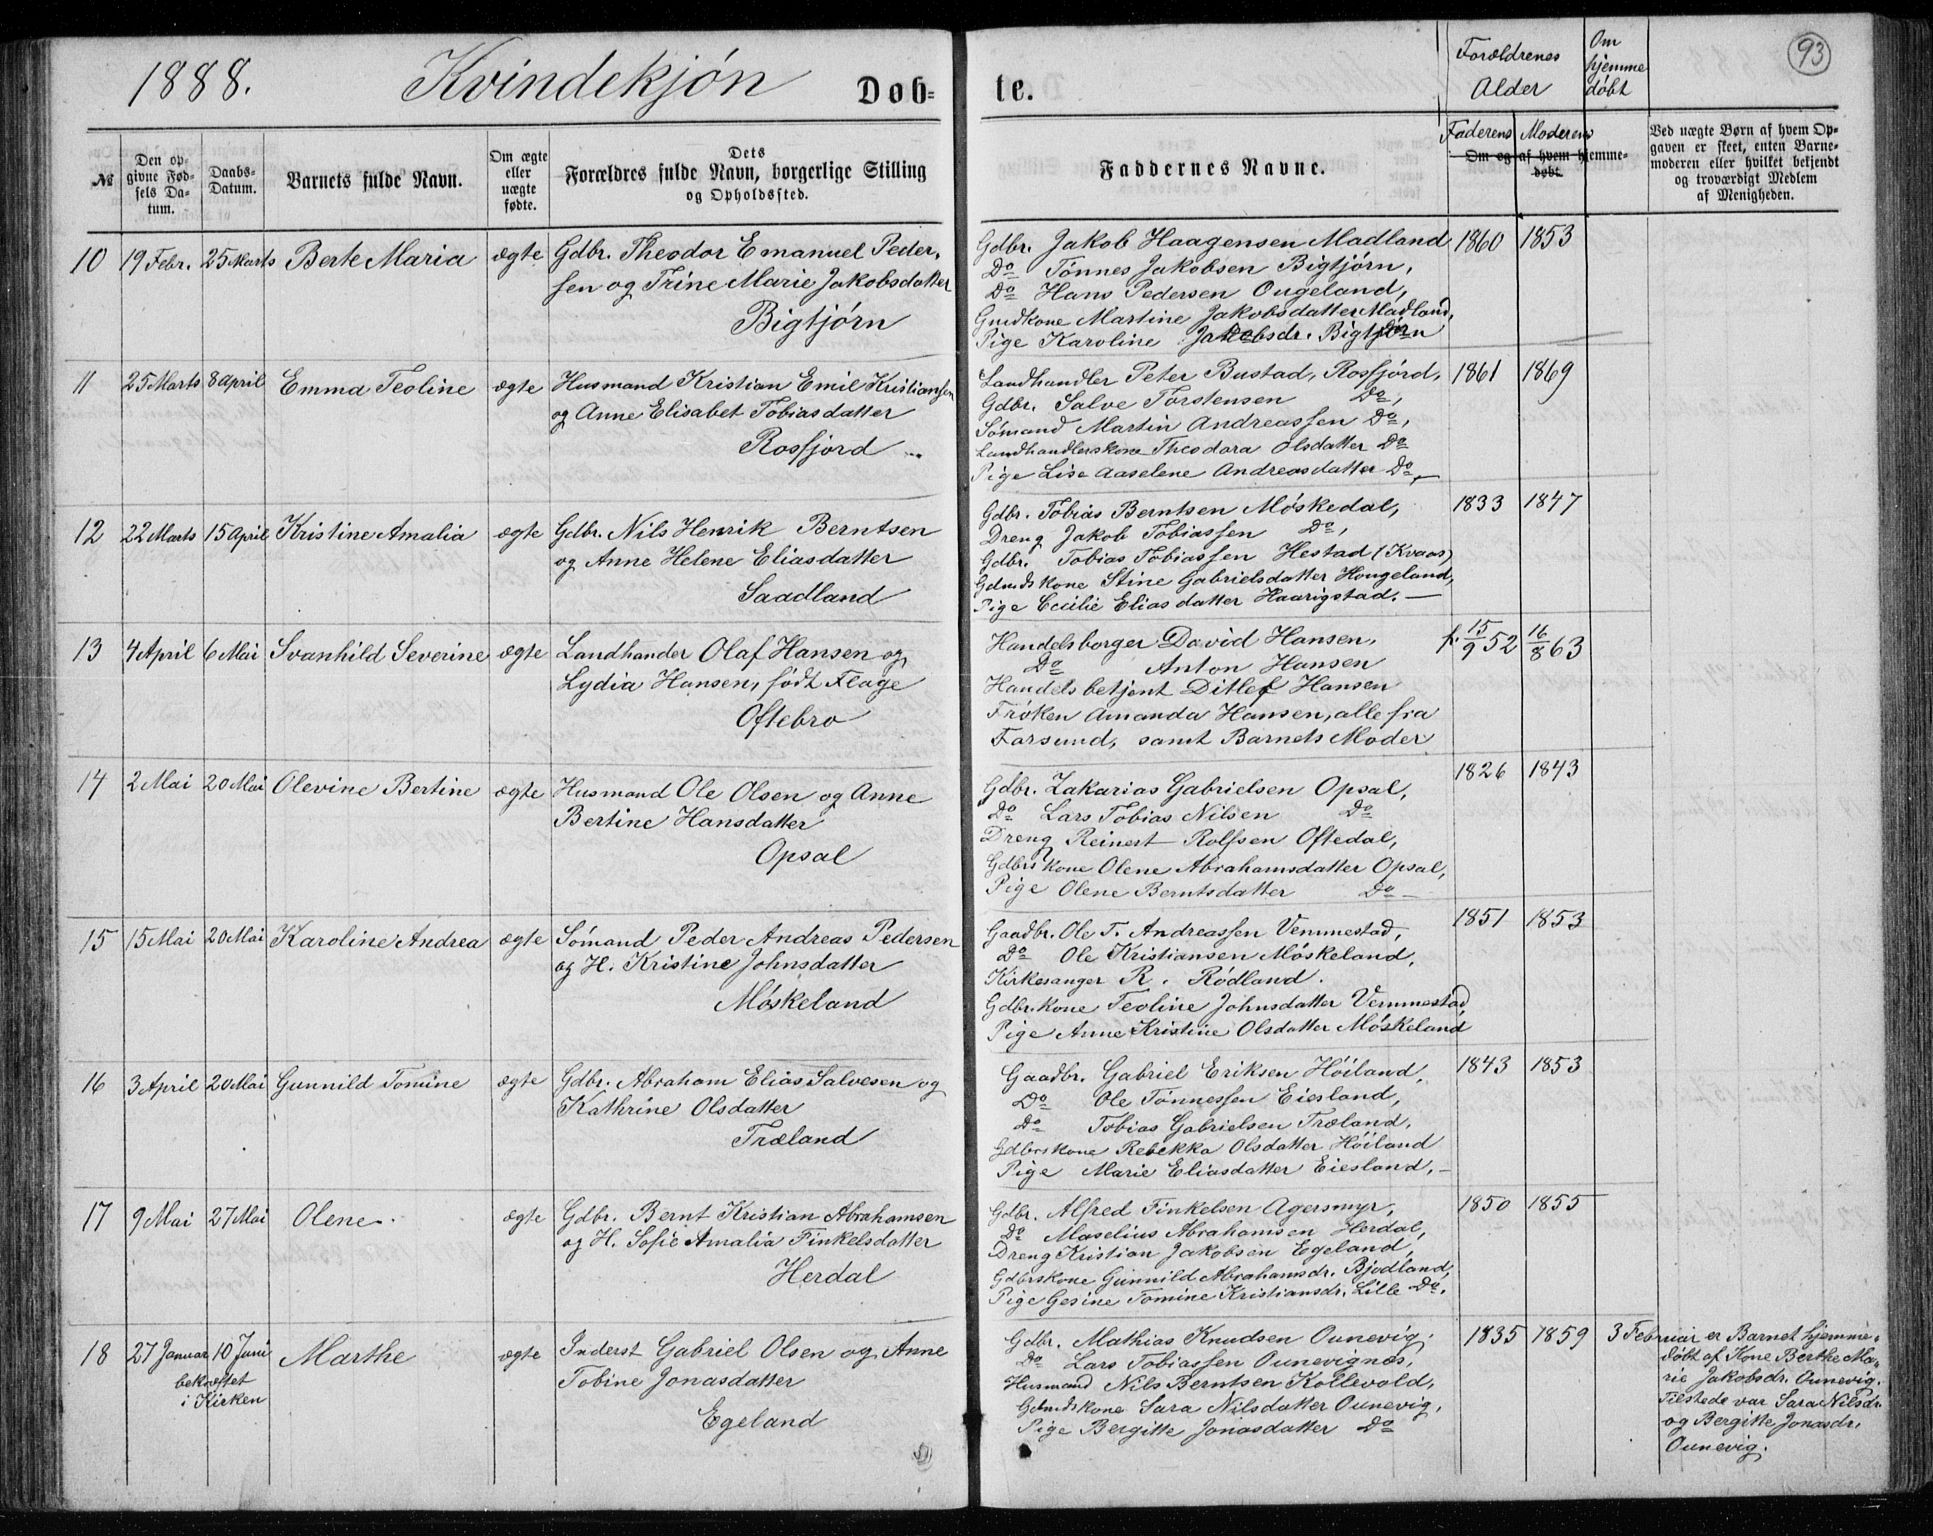 1888. Kvindekjøn Døb-
№
Den op-
givne Fød-
sels Da-
tum.
Daabs-
Datum.
Barnets fulde Navn.
Om ægte
eller
uægte
fødte.
Dets
Forældres fulde Navn, borgerlige Stilling
og Opholdssted.
10 19 Febr. 25 Marts Berte Maria ægte Gdbr. Theodor Emanuel Peder-
sen og Trine Marie Jakobsdatter
Bigtjørn
11 25 Marts 8 April Emma Teoline ægte Husmand Kristian Emil Kristiansen
og Anne Elisabet Tobiasdatter
Rosfjord
12 22 Marts 15 April Kristine Amalia ægte Gdbr. Nils Henrik Berntsen
og Anne Helene Eliasdatter
Saadland
13 4 April 6 Mai Svanhild Severine ægte Landhander Olaf Hansen og
Lydia Hansen, født Flage
Oftebro
14 2 Mai 20 Mai Olevine Bertine ægte Husmand Ole Olsen og Anne
Bertine Hansdatter
Opsal
15 15 Mai 20 Mai Karoline Andrea ægte Sømand Peder Andreas Pedersen
og H. Kristine Johnsdatter
Møskeland
16 3 April 20 Mai Gunnild Tomine ægte Gdbr. Abraham Elias Salvesen og
Kathrine Olsdatter
Træland
17 9 Mai 27 Mai Olene. ægte Gdbr. Bernt Kristian Abrahamsen
og H. Sofie Amalia Finkelsdatter
Herdal
18 27 Januar 10 Juni Marthe ægte Inderst Gabriel Olsen og Anne
bekræftet
i Kirken
Tobine Jonasdatter
Egeland
te.
93
Forældrenes
Alder
Om
hjemme
døbt
Faddernes Navne.
Faderens Moderens
Om og af hvem hjemme-
døbt.
Ved uægte Børn af hvem Op-
gaven er skeet, enten Barne-
moderen eller hvilket bekjendt
og troværdigt Medlem
af Menigheden.
Gdbr. Jakob Haagensen Madland 1860 1853
Do Tønnes Jakobsen Bigtjørn,
Do Hans Pedersen Ougeland,
Gmdkone Martine Jakobsdatter Madland,
Pige Karoline Jakobsdr. Bigtjørn
Landhandler Peter Bustad, Rosfjord, 1861 1869
Gdbr. Salve Torstensen Do,
Sømand Martin Andreassen Do,
Landhandlerskone Theodora Olsdatter Do
Pige Lise Aaselene Andreasdatter Do,
Gdbr. Tobias Berntsen Møskedal, 1833 1847
Dreng Jakob Tobiassen Do,
Gdbr. Tobias Tobiassen Hestad (Kvaas)
Gdmdskone Stine Gabrielsdatter Hougeland,
Pige Cecilie Eliasdatter Haarigstad. —
Handelsborger David Hansen, f. 15/9 52 16/8 63
Do Anton Hansen
Handelsbetjent Ditlef Hansen
Frøken Amanda Hansen, alle fra
Farsund, samt Barnets Moder
Gdbr. Zakarias Gabrielsen Opsal, 1826 1843
Do Lars Tobias Nilsen Do
Dreng Reinert Rolfsen Oftedal,
Gdbrskone Olene Abrahamsdatter Opsal,
Pige Olene Berntsdatter Do —
Gaadbr. Ole T. Andreassen Vemmestad, 1851 1853
Do Ole Kristiansen Møskeland,
Kirkesanger R. Rødland.
Gdbr.kone Teoline Johnsdatter Vemmestad,
Pige Anne Kristine Olsdatter Møskeland
Gaadbr. Gabriel Eriksen Høiland, 1843 1853
Do Ole Tønnessen Eiesland,
Do Tobias Gabrielsen Træland,
Gdbrskone Rebekka Olsdatter Høiland
Pige Marie Eliasdatter Eiesland, —
Gdbr. Alfred Finkelsen Agersmyr, 1850 1855
Do Maselius Abrahamsen Herdal,
Dreng Kristian Jakobsen Egeland,
Gdbrskone Gunnild Abrahamsdr. Bjodland,
Pige Gesine Tomine Kristiansdr. Lille Do.
Gdbr. Mathias Knudsen Ounevig. 1835 1859 3 Februar er Barnet hjemme-
Do Lars Tobiassen Ounevignes, døbt af Kone Berthe Ma-
Husmand Nils Berntsen Kollevold, rie Jakobsdr. Ounevig.
Gdmdskone Sara Nilsdatter Ounevig, Tilstede var Sara Nilsdr.
Pige Bergitte Jonasdatter Do og Bergitte Jonasdr.
Ounevig.